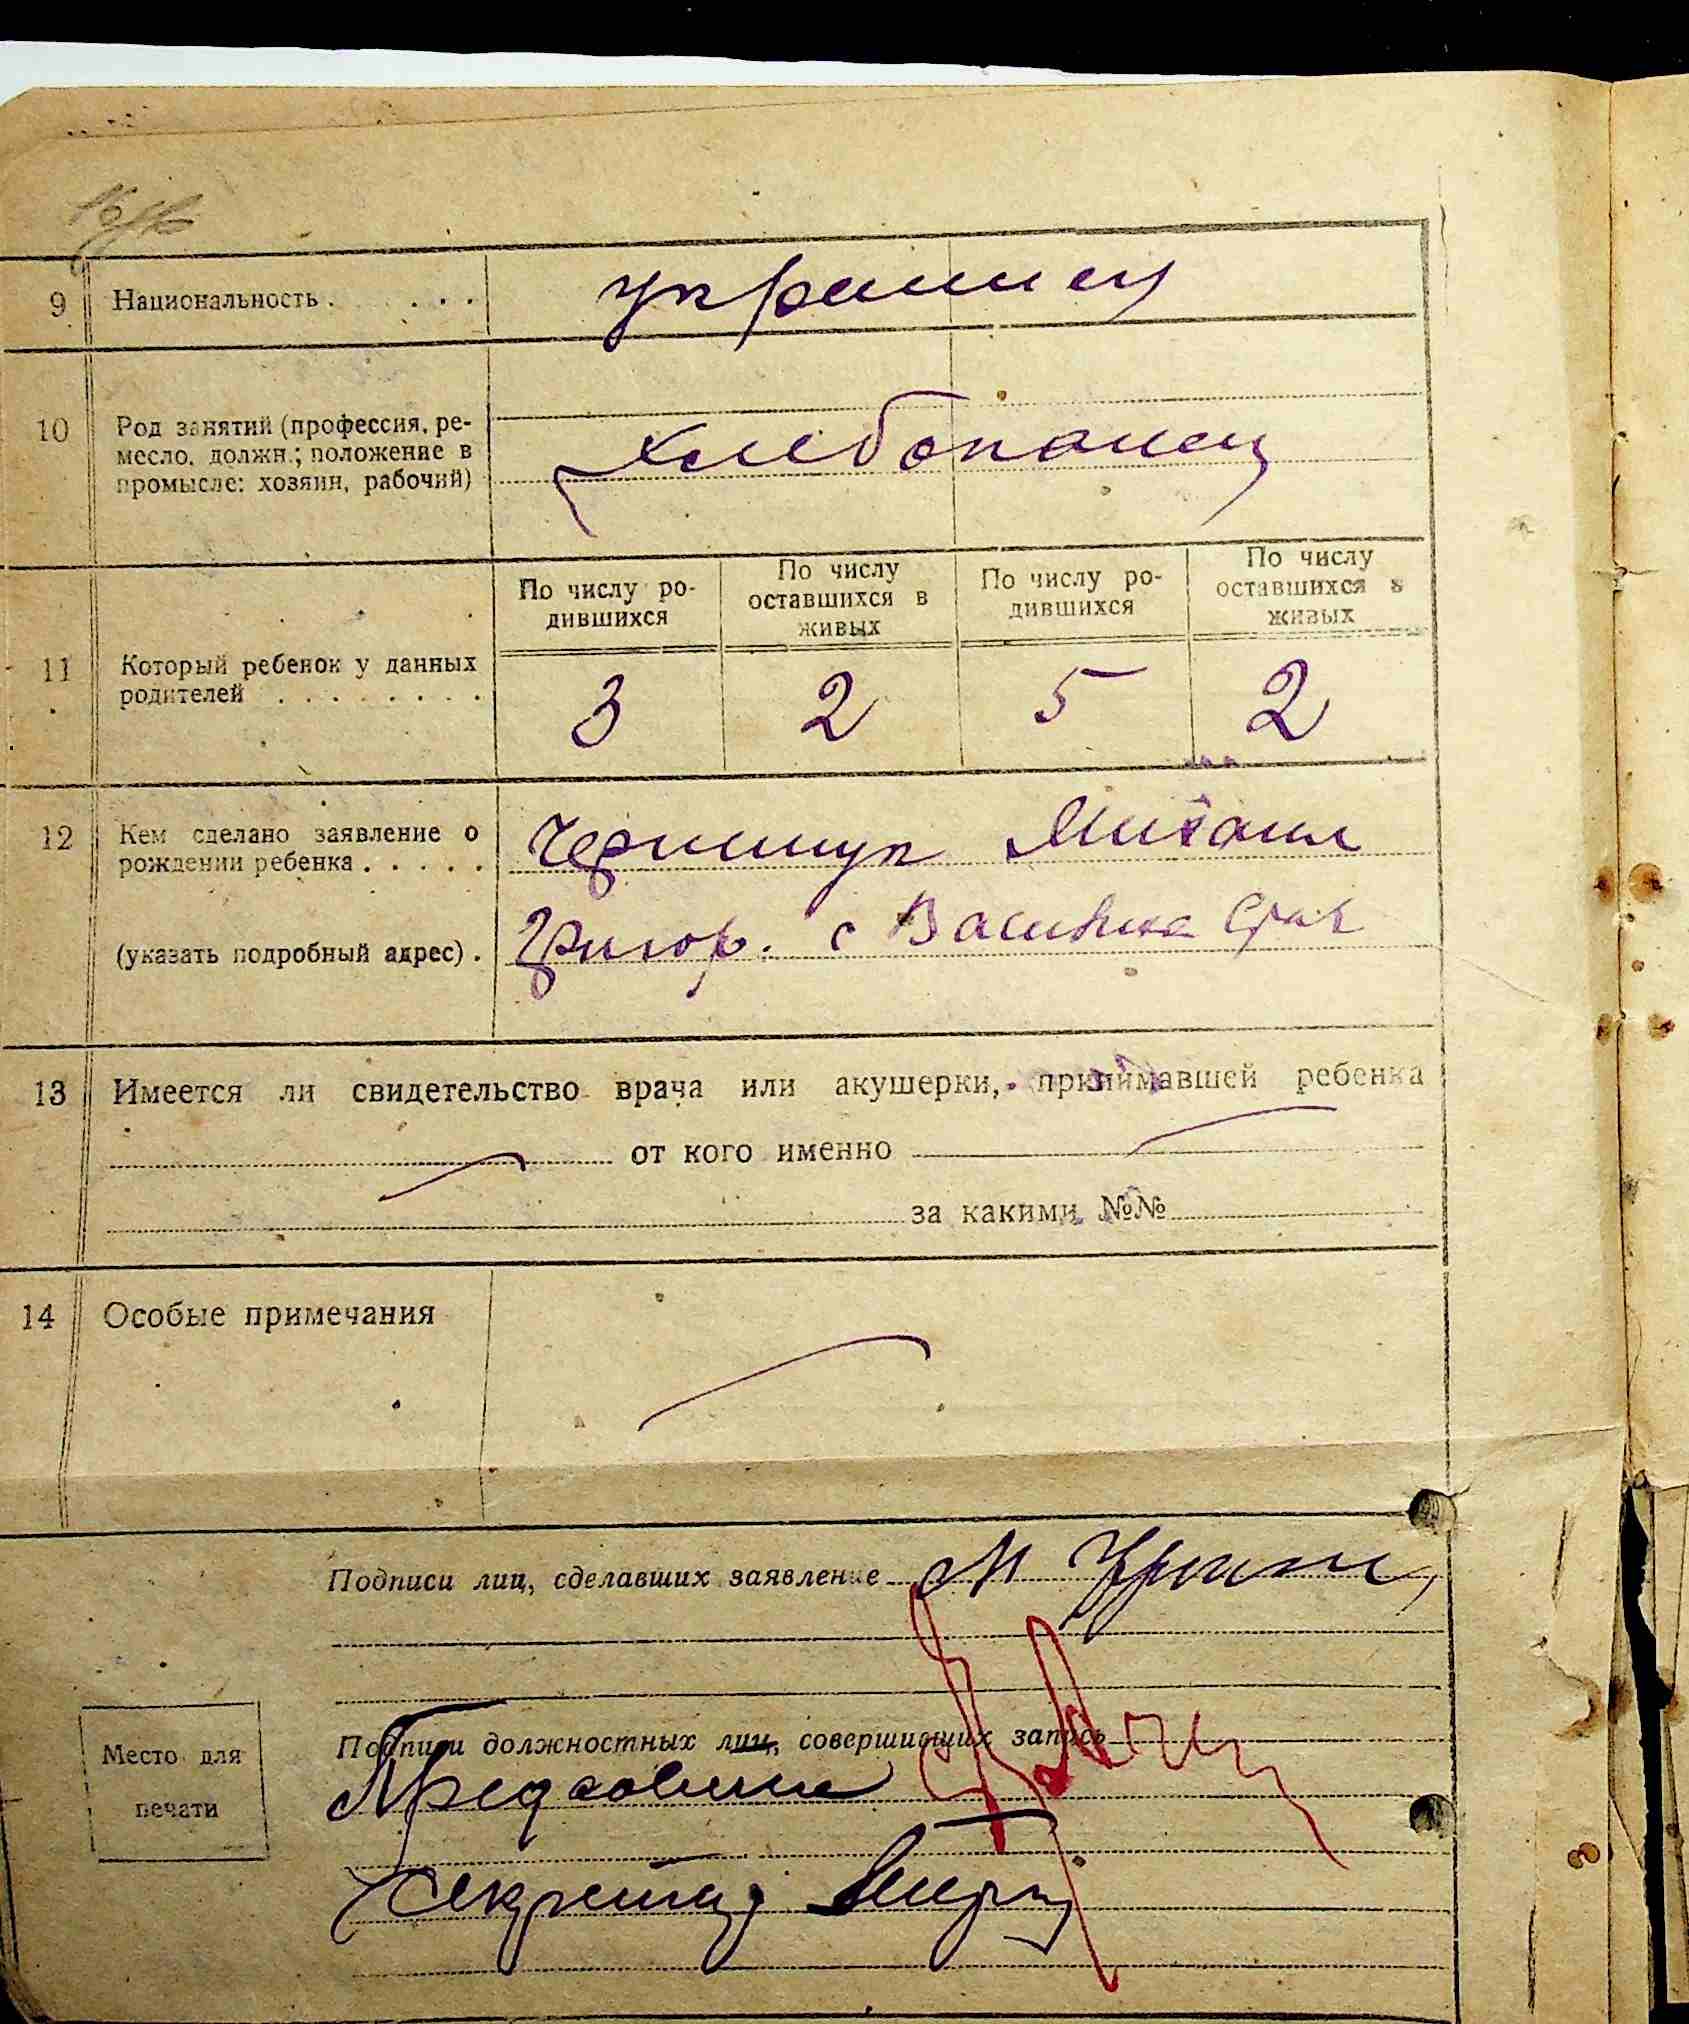 9 Национальность . . . . . украинец
10 Род занятий (профессия, ре-
месло, должн.; положение в
промысле: хозяин, рабочий)
хлебопашец
По числу ро-
дившихся
По числу
оставшихся в
живых
По числу ро-
дившихся
По числу
оставшихся в
живых
11 Который ребенок у данных
родителей . . . . . . . .
3 2 5 2
12 Кем сделано заявление о
рождении ребенка . . . . .
Михаил
(указать подробный адрес) .
Григор. с
13 Имеется ли свидетельство врача или акушерки, принимавшей ребенка
от кого именно
за какими №№
14 Особые примечания
Подписи лиц, сделавших заявление М
Подписи должностных лиц, совершивших запись
Место для
печати
Секретар